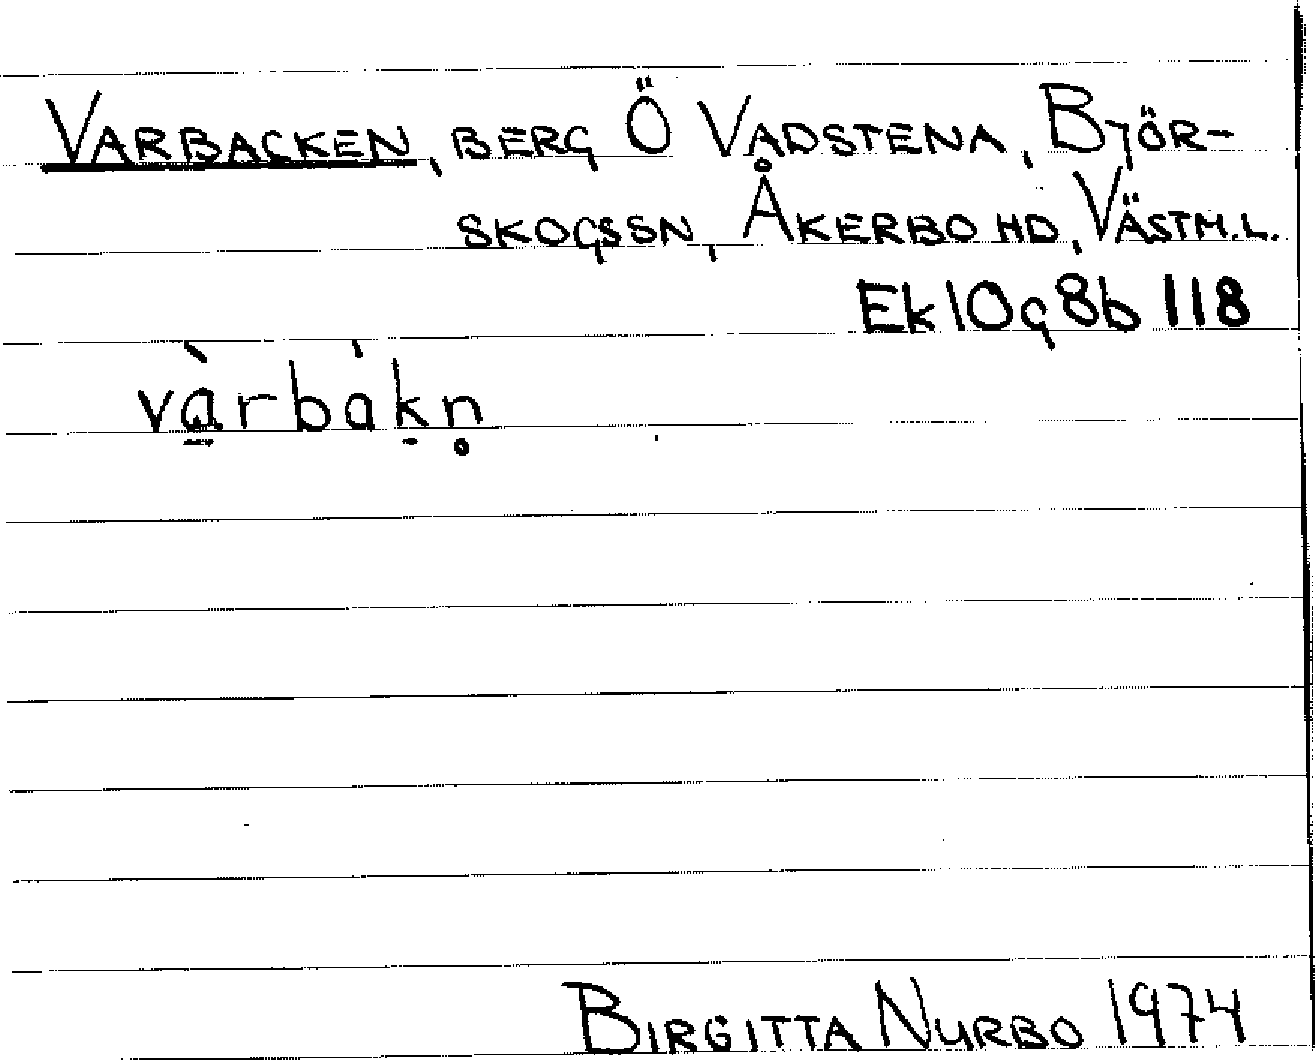 VARBACKEN, BERG Ö VADSTENA, BJÖR-
SKOGSSN, ÅKERBO HD, VÄSTM.L.
Ek10g8b 118
và̱rbák̠n̥
BIRGITTA NURBO 1974